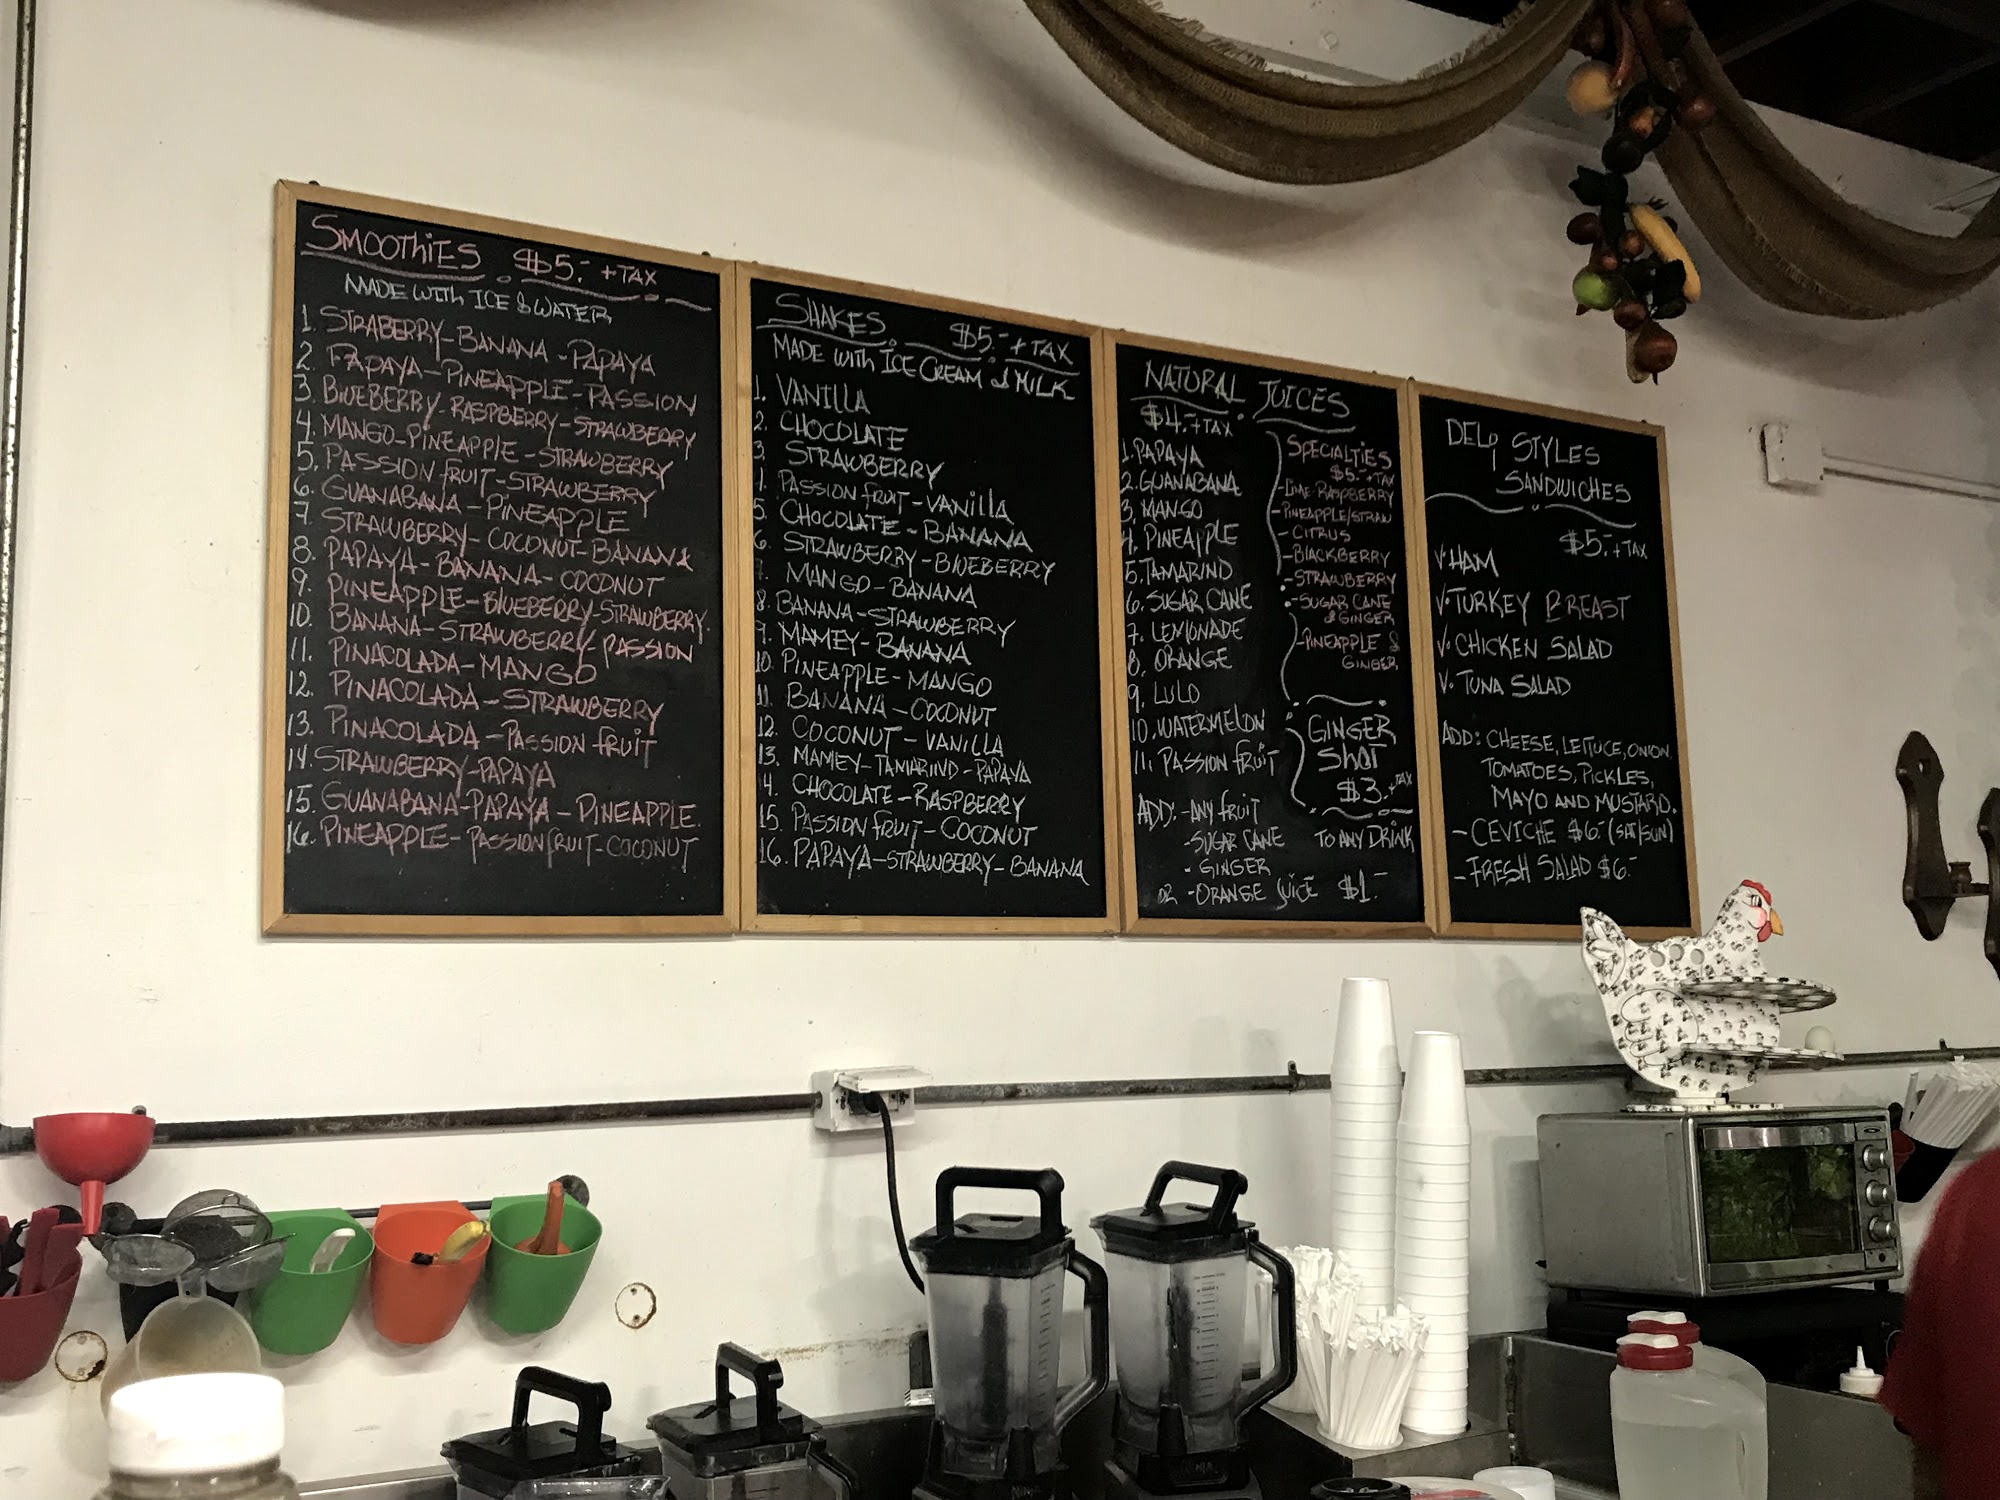 SMOOTHiES $5.- +TAX
MADE WITH ICE & WATER
1. STRABERRY-BANANA-PAPAYA
2. PAPAYA-PINEAPPLE-PASSION
3. BLUEBERRY-RASPBERRY-STRAWBERRY
4. MANGO-PINEAPPLE-STRAWBERRY
5. PASSION fRUIT-STRAWBERRY
6. GUANABANA-PINEAPPLE
7. STRAWBERRY-COCONUT-BANANA
8. PAPAYA-BANANA-COCONUT
9. PINEAPPLE-BLUEBERRY-STRAWBERRY
10. BANANA-STRAWBERRY-PASSION
11. PINACOLADA-MANGO
12. PINACOLADA-STRAWBERRY
13. PINACOLADA-PASSION fRUIT
14. STRAWBERRY-PAPAYA
15. GUANABANA-PAPAYA-PINEAPPLE
16. PINEAPPLE-PASSIONfRUIT-COCONUT
SHAKES $5.- +TAX
MADE with ICE CREAM & MILK
1. VANILLA
2. CHOCOLATE
3. STRAWBERRY
4. PASSION fRUIT-VANILLA
5. CHOCOLATE-BANANA
6. STRAWBERRY-BLUEBERRY
7. MANGO-BANANA
8. BANANA-STRAWBERRY
9. MAMEY-BANANA
10. PINEAPPLE-MANGO
11. BANANA-COCONUT
12. COCONUT-VANILLA
13. MAMEY-TAMARIND-PAPAYA
14. CHOCOLATE-RASPBERRY
15. PASSION fRUIT-COCONUT
16. PAPAYA-STRAWBERRY-BANANA
NATURAL JUICES
$4.-+TAX
1. PAPAYA
2. GUANABANA
3. MANGO
4. PINEAPPLE
5. TAMARIND
6. SUGAR CANE
7. LEMONADE
8. ORANGE
9. LULO
10. WATERMELON
11. PASSION fRUIT
SPECIALTIES
$5.-+TAX
-LIME-RASPBERRY
-PINEAPPLE/STRAW
-CITRUS
-BLACKBERRY
-STRAWBERRY
-SUGAR CANE
& GINGER
-PINEAPPLE &
GINGER
GINGER
Shot
$3.-+TAX
ADD: -ANY fRUIT
-SUGAR CANE TO ANY DRINK
-GINGER
OR -ORANGE JUICE $1.-
DELi STYLES
SANDWICHES
$5.-+TAX
V. HAM
V. TURKEY BREAST
V. CHICKEN SALAD
V. TUNA SALAD
ADD: CHEESE, LETTUCE, ONION,
TOMATOES, PICKLES,
MAYO AND MUSTARD.
-CEVICHE $6.- (SAT/SUN)
-FRESH SALAD $6.-